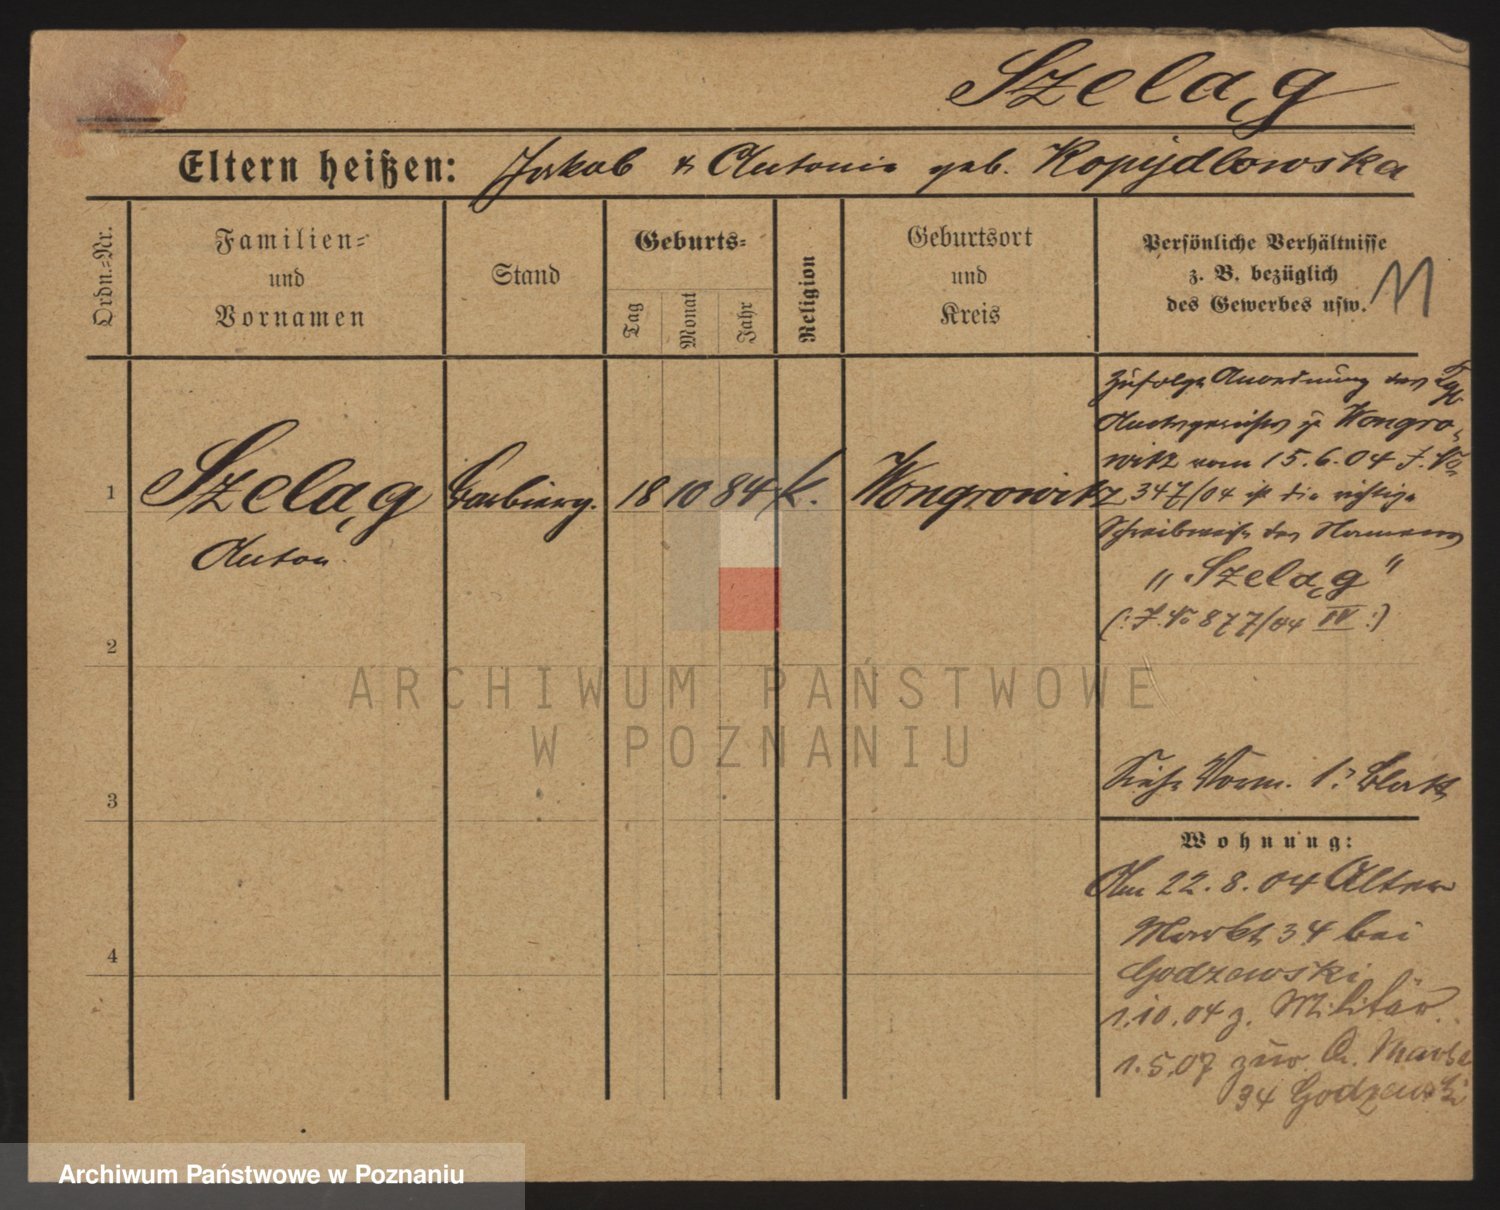 Szeląg
Eltern heißen: Jakob & Antonie geb. Kopydlowska
Ordn.-Nr.
Familien-
und
Vornamen
Stand
Geburts-
Tag
Monat
Jahr
Religion
Geburtsort
und
Kreis
Persönliche Verhältnisse
z. B. bezüglich
des Gewerbes usw.
1 Szeląg Barbierg. 18 10 84 k. Wongrowitz
Anton
Zufolge Anordnung des Kgl.
Amtsgerichts zu Wongro-
witz vom 15.6.04 J. No
347/04 ist die richtige
Schreibweise des Namens
"Szeląg"
(: J. No 877/04 IV :)
2
3
4
Siehe Vorm. 1. Blatt
Wohnung:
Am 22.8.04 Alter
Markt 34 bei
Godzewski
1.10.04 z. Militär.
1.5.07 zur. A. Markt
34 Godzewski
ARCHIWUM PAŃSTWOWE
W POZNANIU
Archiwum Państwowe w Poznaniu